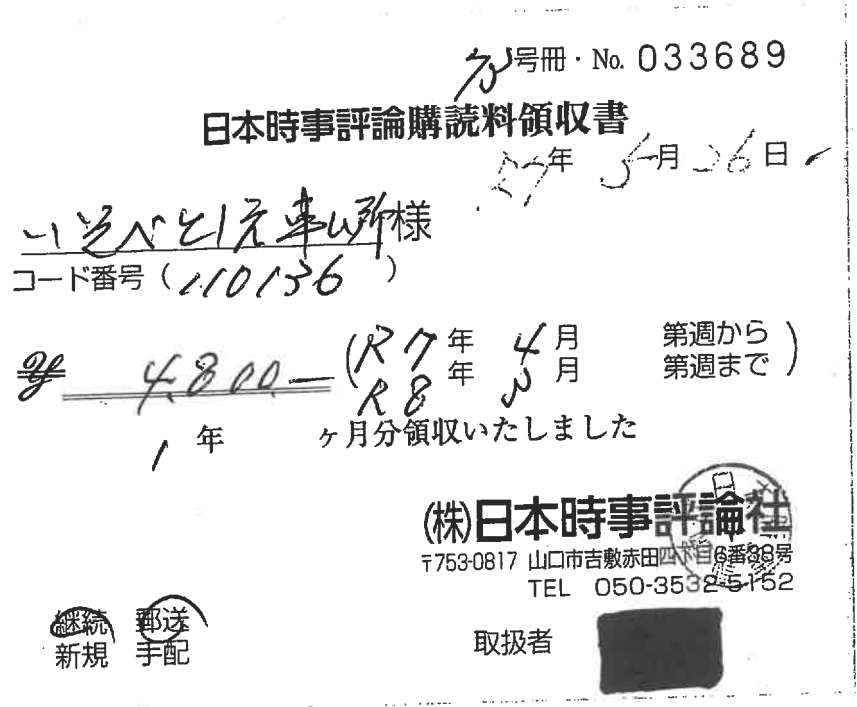 号冊・No. 033689
日本時事評論購読料領収書
年 5月 26日
いそべと1元事ム所様
コード番号（110136）
¥ 4,800.—
(R7年 4月 第週から
R8年 3月 第週まで)
1年 ヶ月分領収いたしました
(株)日本時事評論社
〒753-0817 山口市吉敷赤田四丁目6番38号
TEL 050-3532-5152
継続 郵送
新規 手配
取扱者